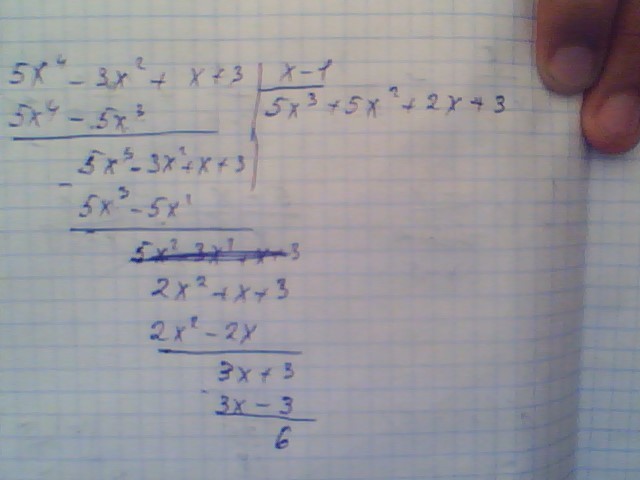 5x⁴ - 3x² + x + 3 | x - 1
5x⁴ - 5x³ | 5x³ + 5x² + 2x + 3
5x³ - 3x² + x + 3
- 5x³ - 5x²
5x² - 3x² + x + 3
2x² + x + 3
2x² - 2x
3x + 3
- 3x - 3
6